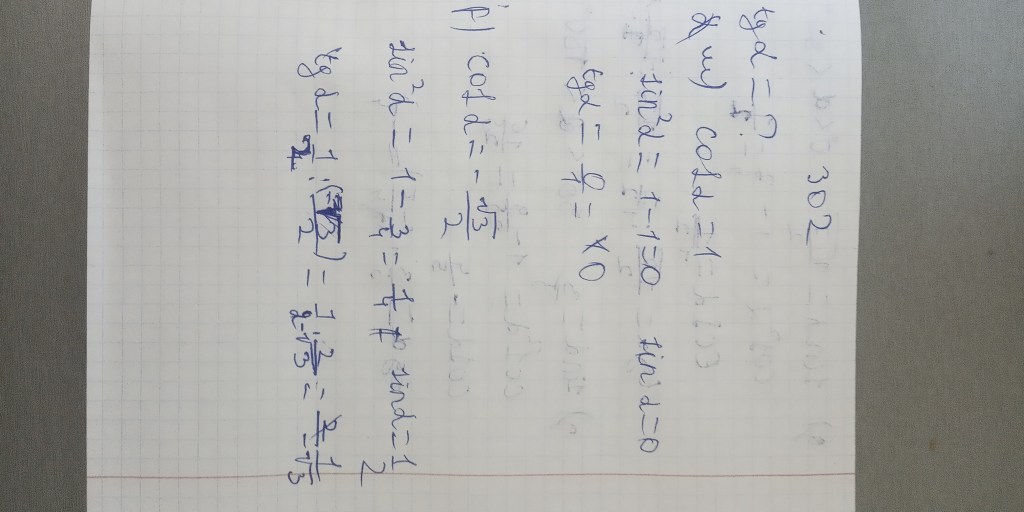 302
tg α = ?
а) cos α = 1
sin²α = 1 - 1 = 0 sin α = 0
tg α = 0/1 = 0
б) cos α = - √3/2
sin²α = 1 - 3/4 = 1/4 sin α = 1/2
tg α = 1/2 : (-√3/2) = 1·2/2·-√3 = 1/-√3